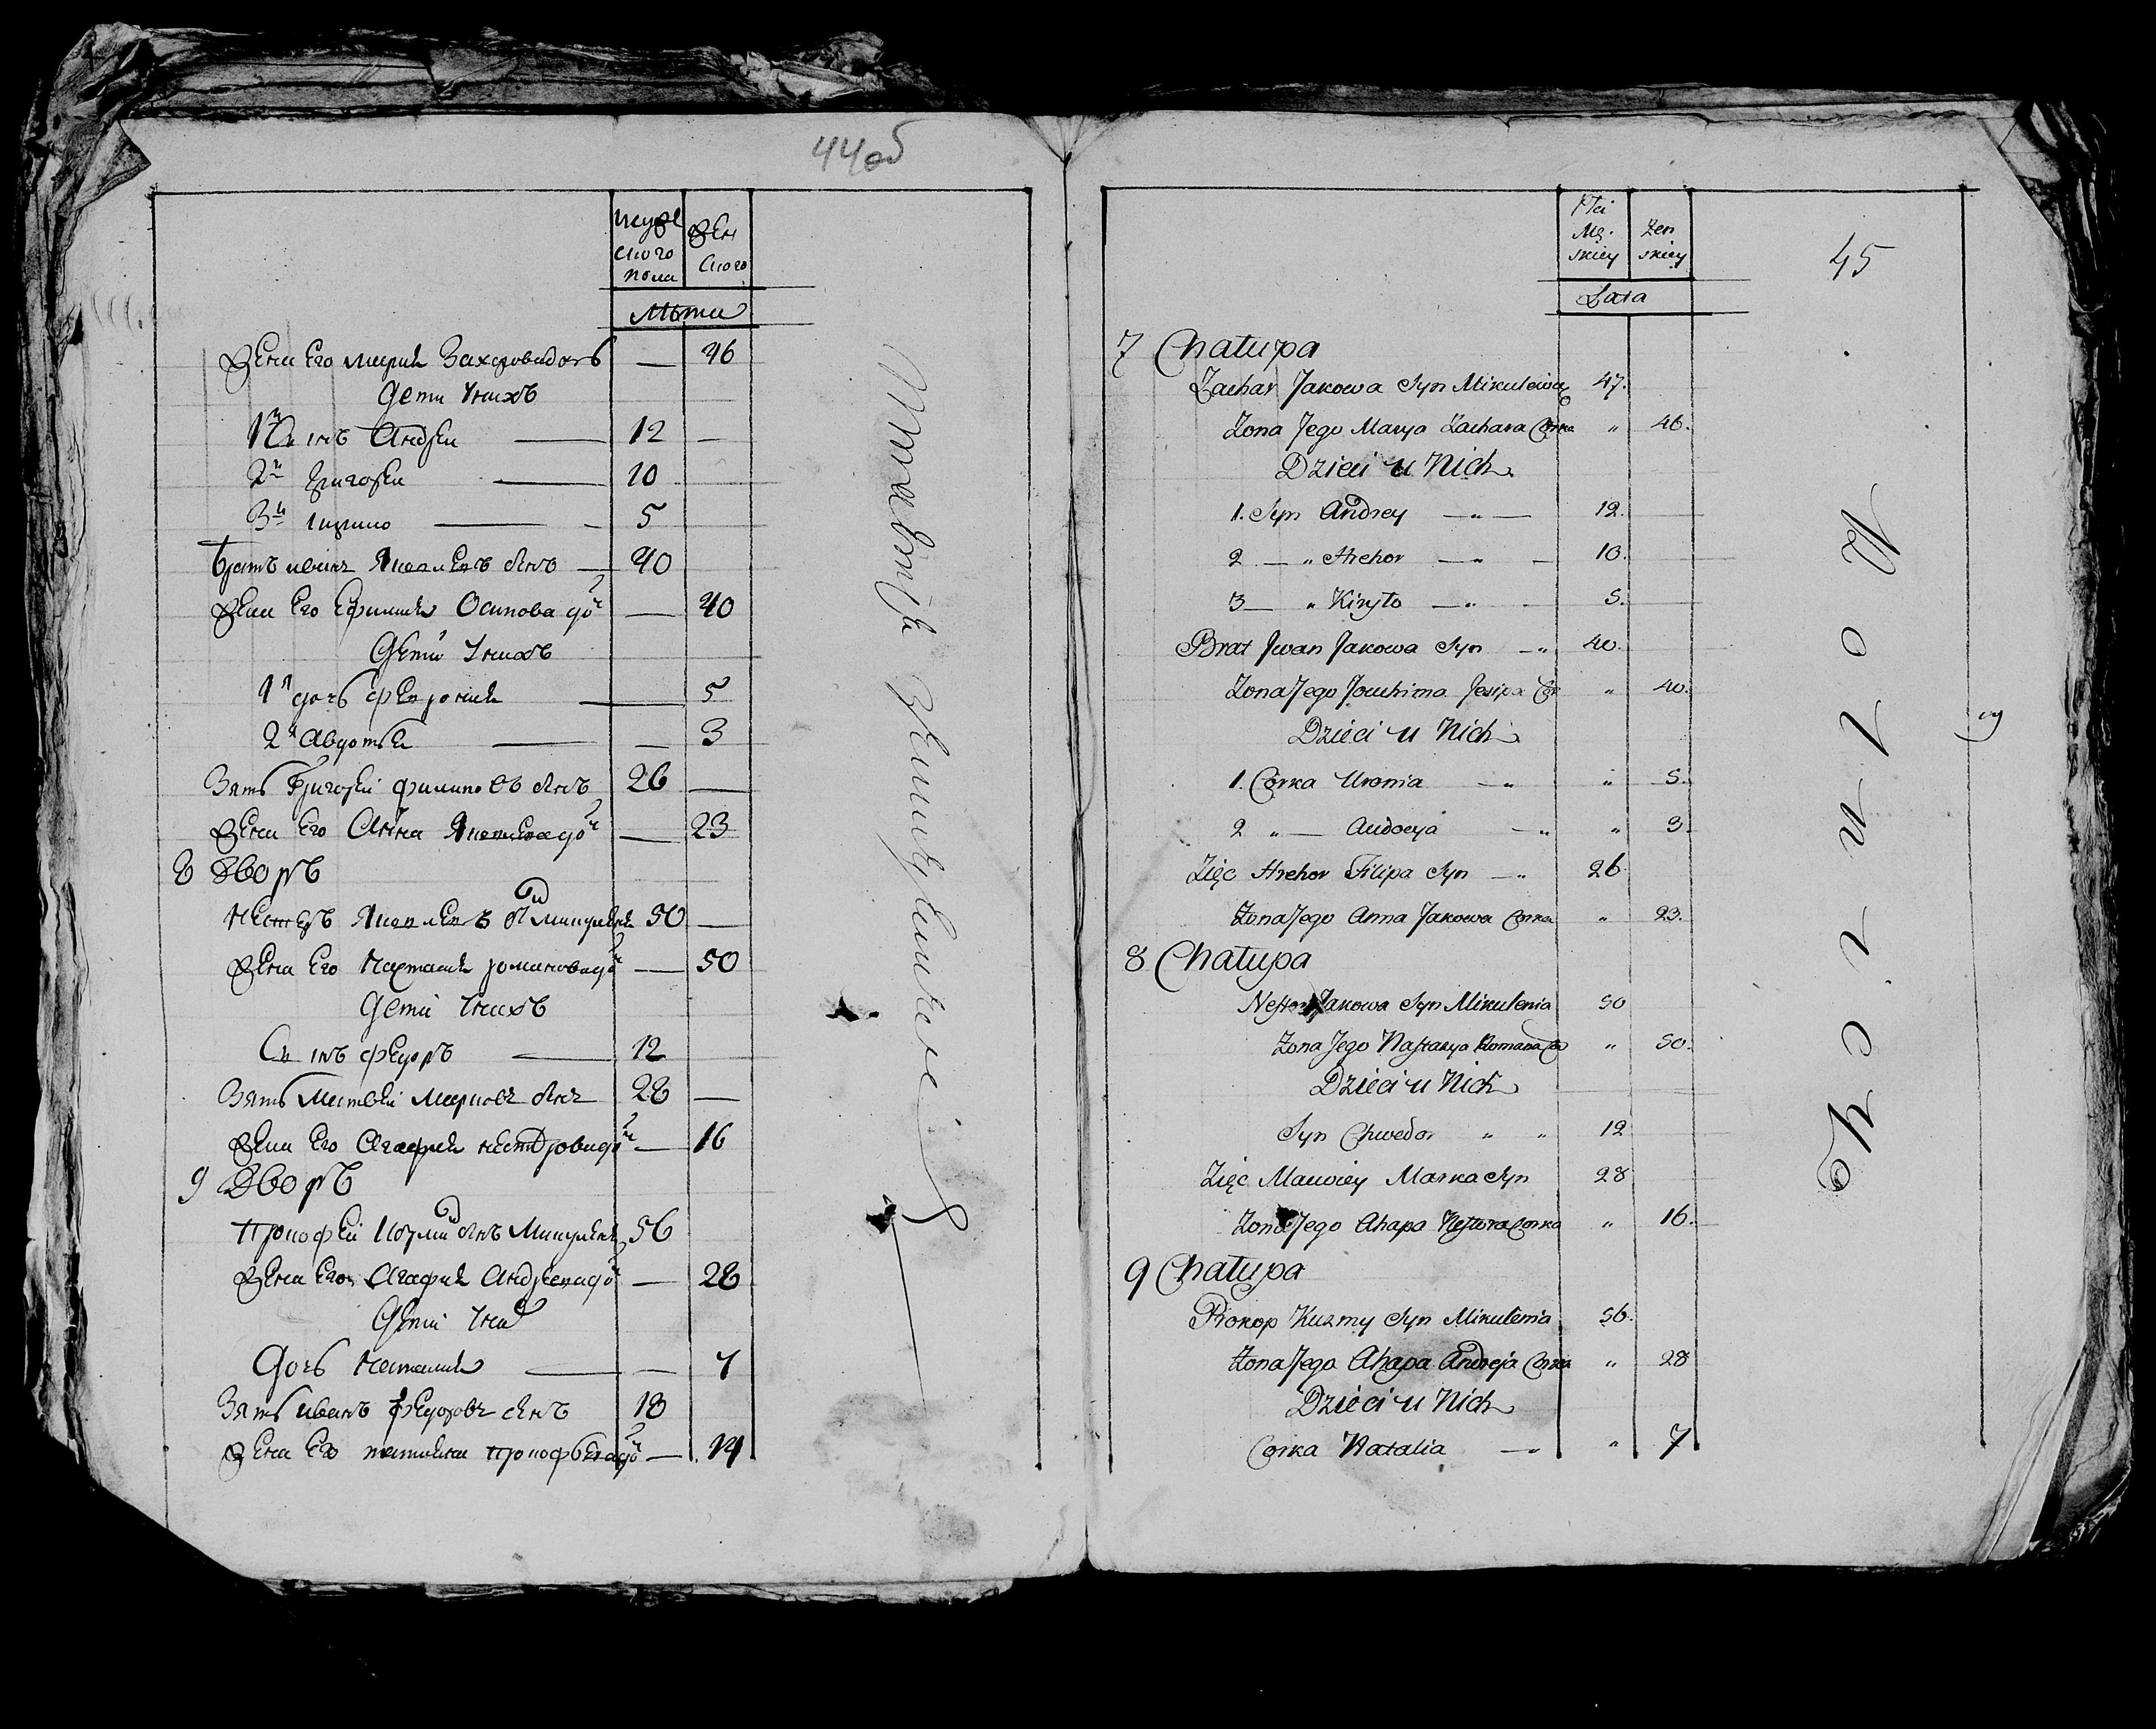 44об
муже
ского
пола
жен
ского
Лѣта
Жена Его мария Захарова дочь — 46
Дети у них
1й Сынъ Андрей — 12 —
2й Григорей — 10
3й Кирило — 5
Братъ иванъ Яковлевъ сынъ — 40
Жена Его Ефимия Осипова до — 40
Дети у нихъ
1я дочь феврония — 5
2я Авдотья — 3
Зять Григорей филиповъ сынъ 26 —
Жена Его Анна Яковлева до — 23
8 Дворъ
Нестеръ Яковлевъ сынъ микуленя 50 —
Жена Его Настасия романова до — 50
Дети у нихъ
Сынъ федоръ — 12
Зять Матвей Марковъ сынъ 28 —
Жена Его Агафия нестерова до — 16
9 Дворъ
Прокофей Козмин сынъ Микуленя 56
Жена Его Агафия Андреева до — 28
Дети у них
Дочь Наталия — 7
Зять иванъ федоровъ сынъ 18
Жена Его татьяна прокофьева до — 14
45
Płci
Mę.
skiey
Żen
skiey
Lata
7 Chałupa
Zachar Jakowa Syn Mikulenia 47.
Żona Jego Marya Zachara Corka " 46.
Dzieci u Nich
1. Syn Andrey — " — 12.
2 — " Hrehor — " — 10.
3 — " Kiryło — " 5.
Brat Jwan Jakowa Syn — " 40.
Żona Jego Jouchima Jesipa Cor " 40.
Dzieci u Nich
1. Corka Uronia — " " 5.
2 " — Audocya — " " 3.
Zięć Hrehor Filipa Syn — " 26.
Żona Jego Anna Jakowa Corka " 23.
8 Chałupa
Nestor Jakowa Syn Mikulenia 50
Żona Jego Nastazya Romana Co " 50.
Dzieci u Nich
Syn Chwedor " " 12
Zięć Matwiey Marka Syn 28
Żona Jego Ahapa Nestora Corka " 16.
9 Chałupa
Prokop Kuzmy Syn Mikulenia 56.
Żona Jego Ahapa Andreja Corka " 28
Dzieci u Nich
Corka Natalia — " " 7